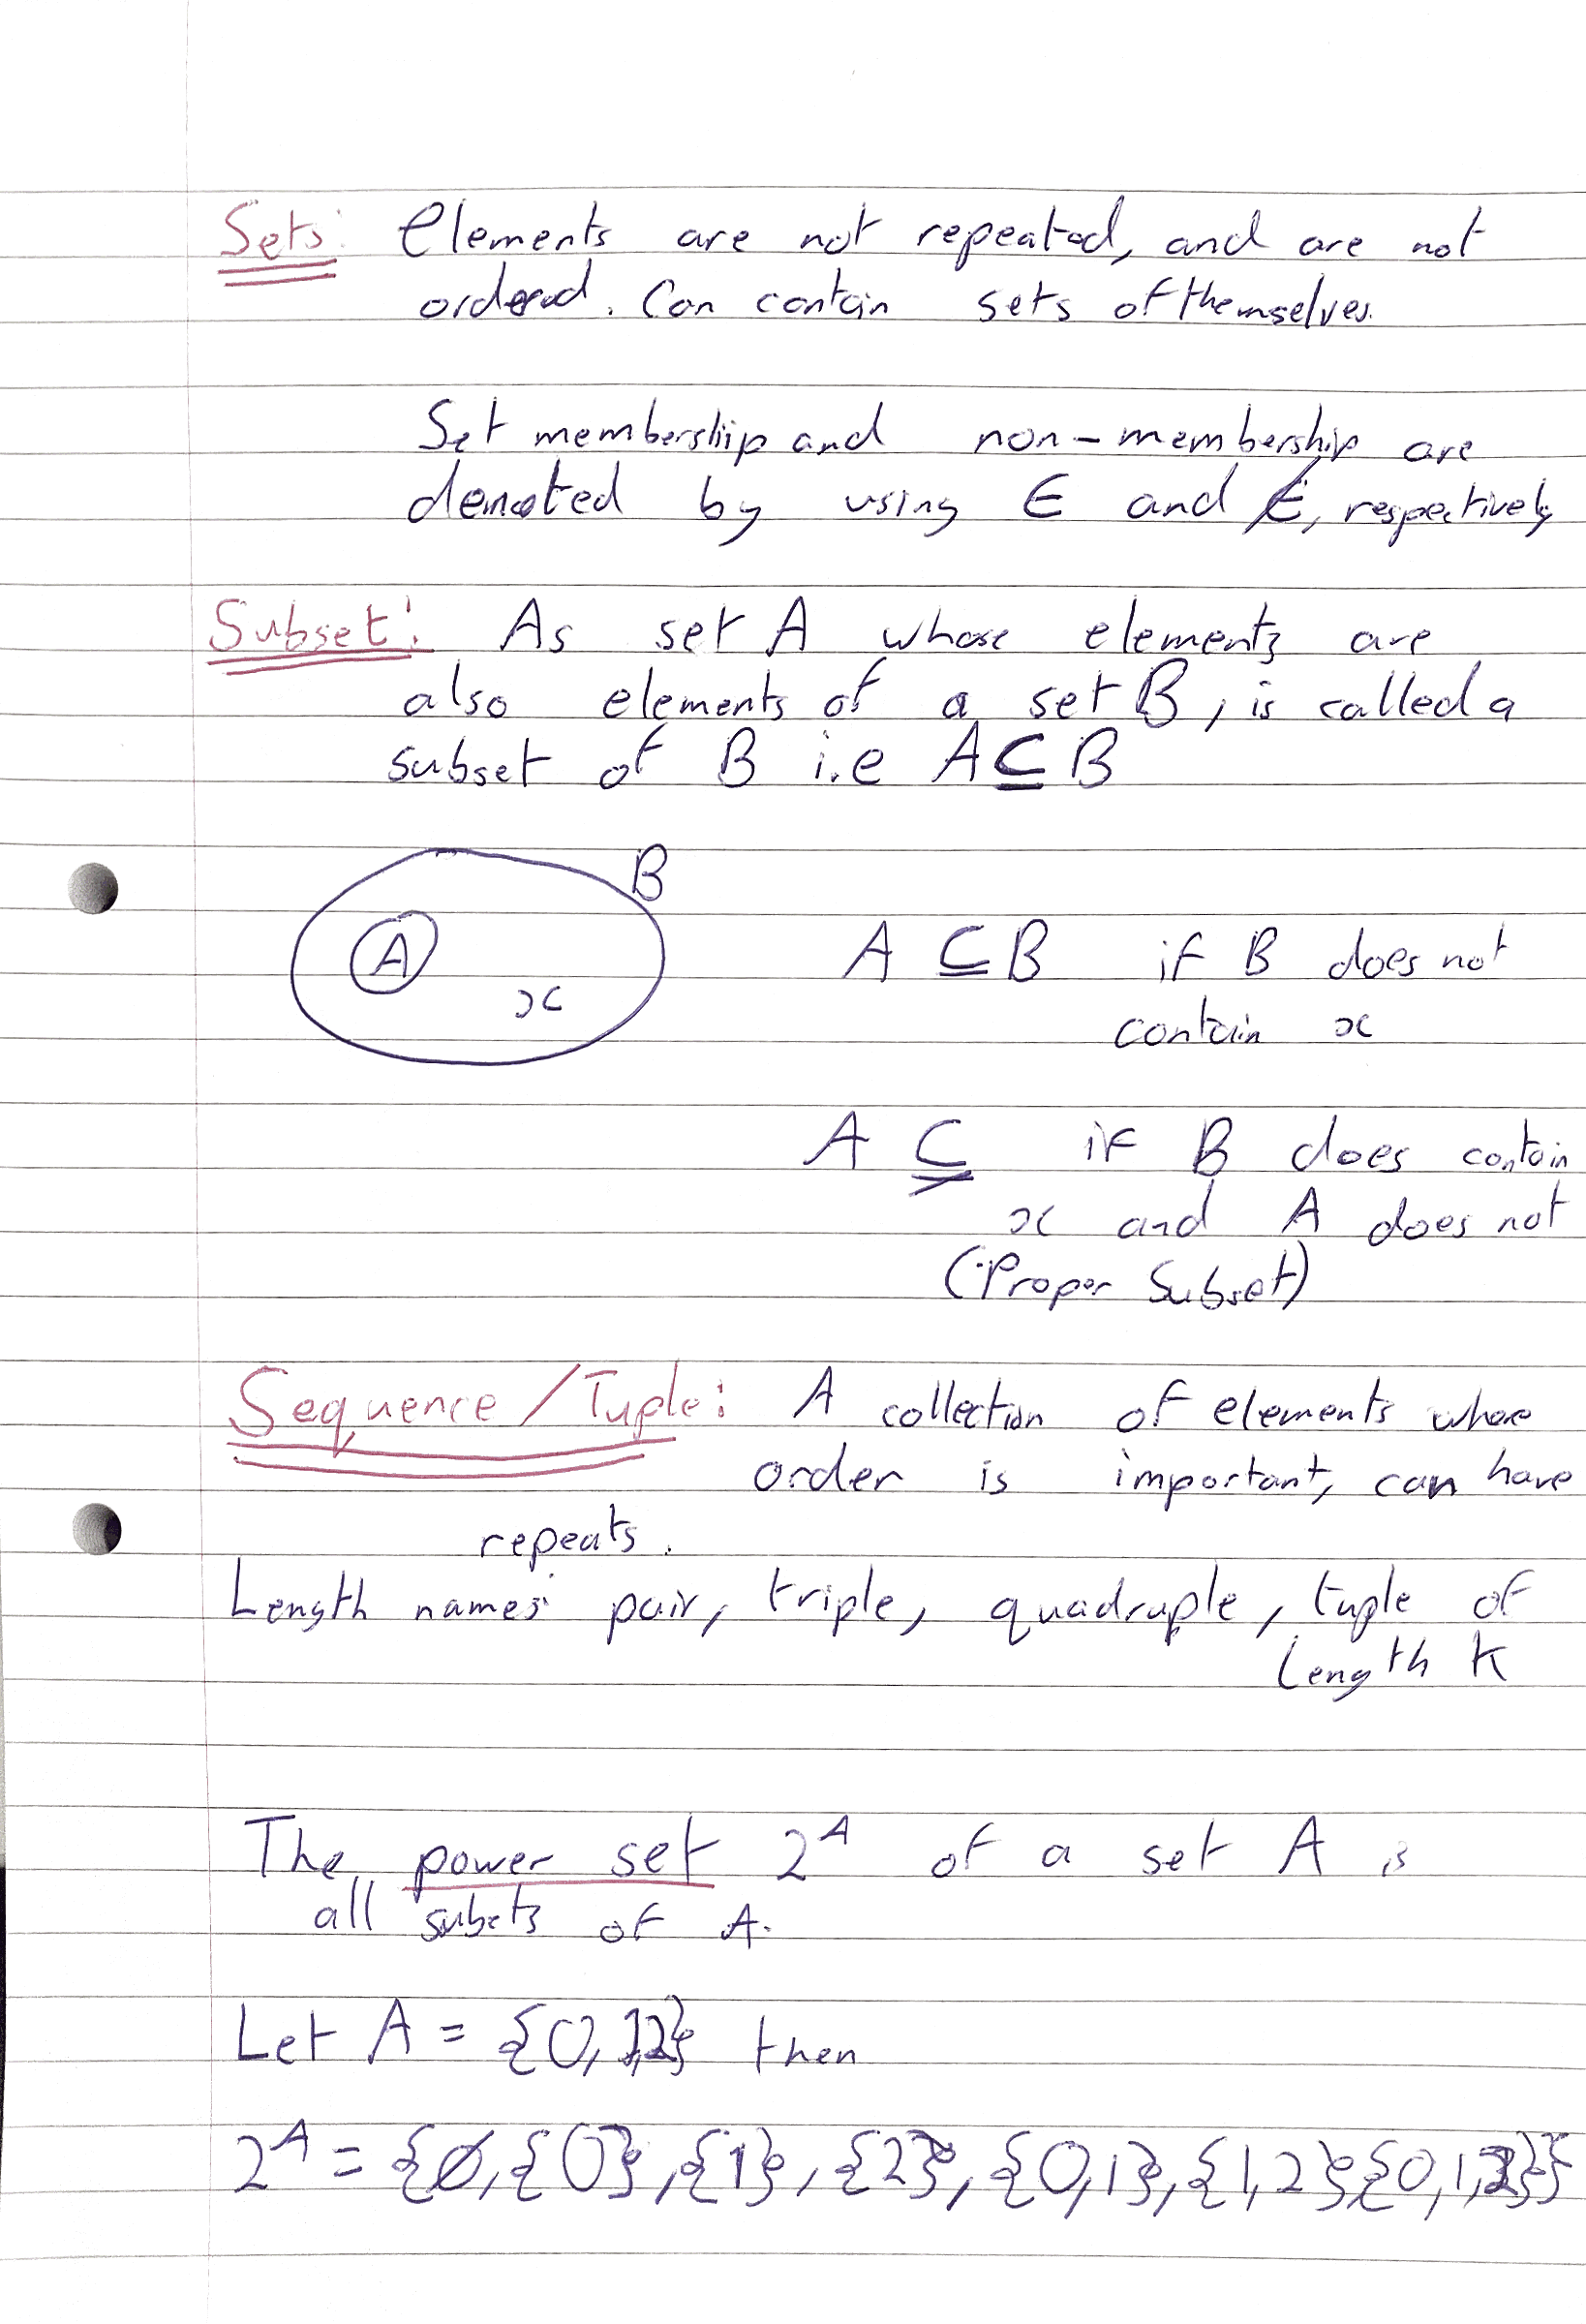 Sets: Elements are not repeated, and are not
ordered. Can contain sets of themselves.
Set membership and non-membership are
denoted by using ∈ and ∉, respectively
Subset: As set A whose elements are
also elements of a set B, is called a
subset of B i.e A ⊆ B
B
A
x
A ⊆ B if B does not
contain x
A ⊊ if B does contain
x and A does not
(Proper Subset)
Sequence/Tuple: A collection of elements where
order is important, can have
repeats.
Length names: pair, triple, quadruple, tuple of
length k
The power set 2^A of a set A is
all subets of A.
Let A = {0,1,2} then
2^A = {∅, {0}, {1}, {2}, {0,1}, {1,2}, {0,1,2}}